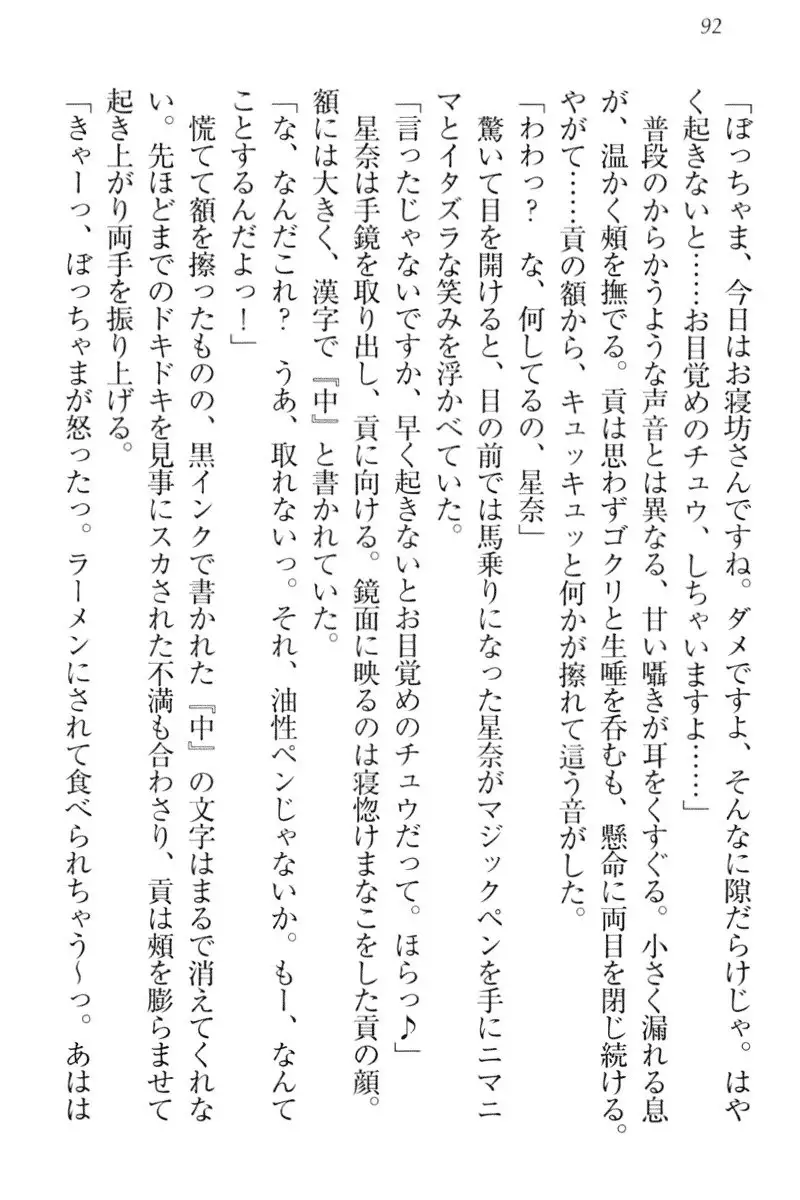 92
「ぼっちゃま、今日はお寝坊さんですね。ダメですよ、そんなに隙だらけじゃ。はや
く起きないと……お目覚めのチュウ、しちゃいますよ……」
普段のからかうような声音とは異なる、甘い囁きが耳をくすぐる。小さく漏れる息
が、温かく頰を撫でる。貢は思わずゴクリと生唾を呑むも、懸命に両目を閉じ続ける。
やがて……貢の額から、キュッキュッと何かが擦れて這う音がした。
「わわっ？　な、何してるの、星奈」
驚いて目を開けると、目の前では馬乗りになった星奈がマジックペンを手にニマニ
マとイタズラな笑みを浮かべていた。
「言ったじゃないですか、早く起きないとお目覚めのチュウだって。ほらっ♪」
星奈は手鏡を取り出し、貢に向ける。鏡面に映るのは寝惚けまなこをした貢の顔。
額には大きく、漢字で『中』と書かれていた。
「な、なんだこれ？　うあ、取れないっ。それ、油性ペンじゃないか。もー、なんて
ことするんだよっ！」
慌てて額を擦ったものの、黒インクで書かれた『中』の文字はまるで消えてくれな
い。先ほどまでのドキドキを見事にスカされた不満も合わさり、貢は頰を膨らませて
起き上がり両手を振り上げる。
「きゃーっ、ぼっちゃまが怒ったっ。ラーメンにされて食べられちゃう～っ。あはは